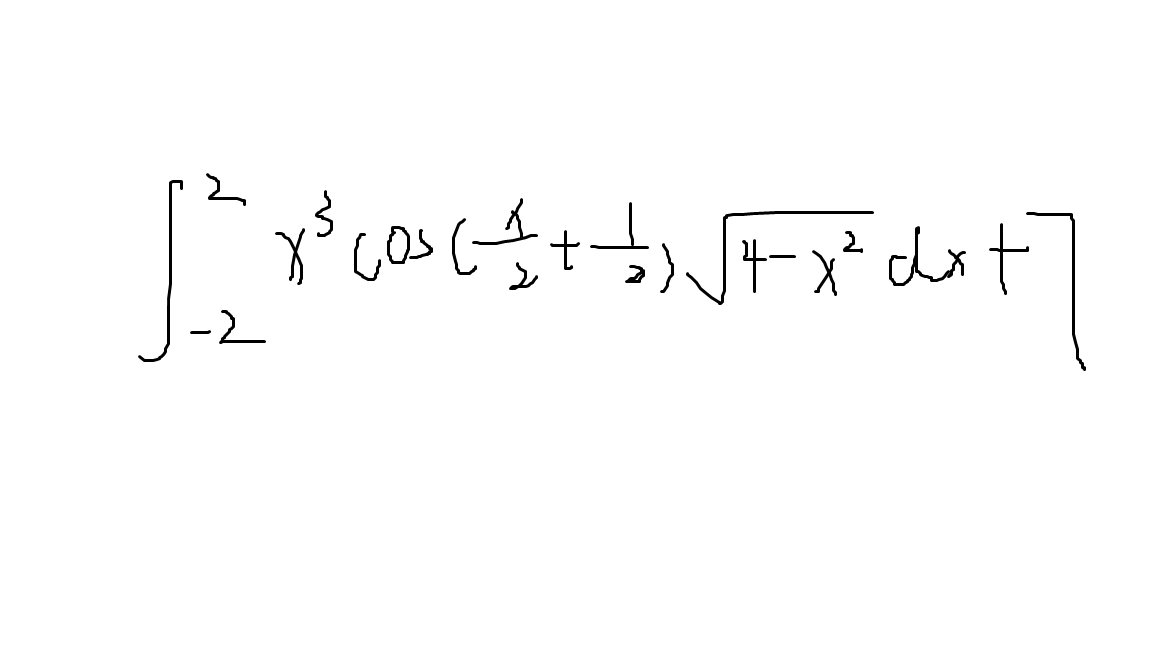 ∫_{-2}^{2} x³ cos(x/2 + 1/2) √(4 - x²) dx + 7